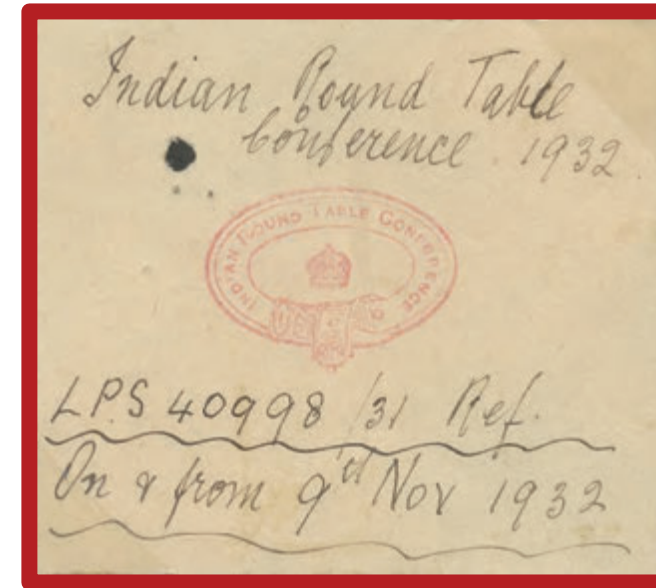 Indian Round Table
Conference 1932.
INDIAN ROUND TABLE CONFERENCE
LPS 40998/31 Ref.
On & from 9th Nov 1932